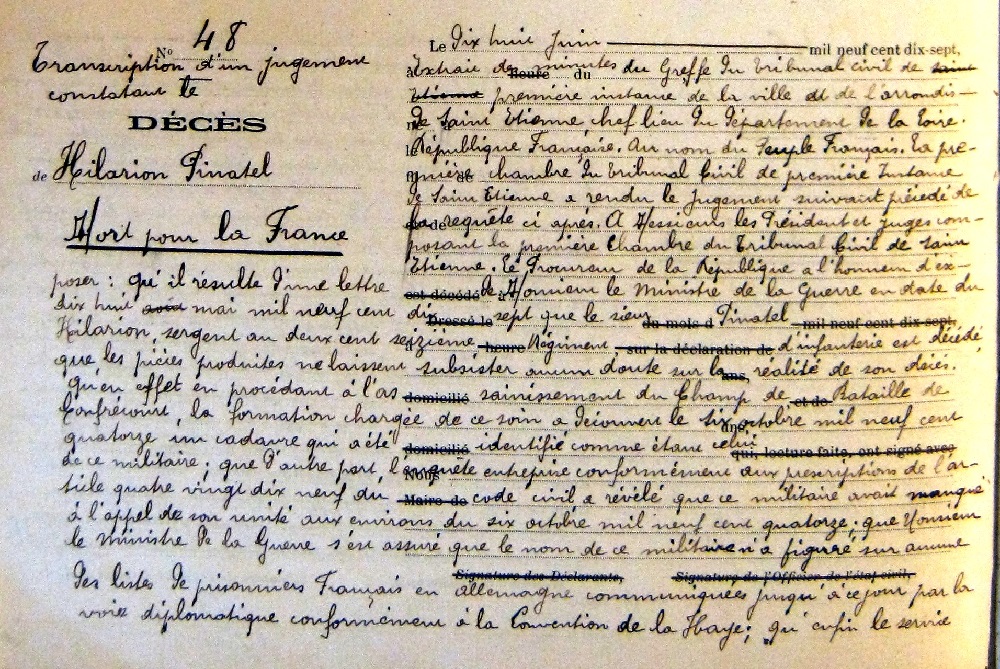 N° 48
Transcription d'un jugement
constatant le
DÉCÈS
de Hilarion Pinatel
Mort pour la France
Le Dix huit Juin mil neuf cent dix-sept,
Extrait des minutes du Greffe du Tribunal Civil de saint
Etienne première instance de la ville et de l'arrondis-
de Saint Etienne chef lieu du département de la Loire.
République Française. Au nom du Peuple Français. La pre-
mière chambre du Tribunal Civil de première Instance
de Saint Etienne a rendu le Jugement suivant précédé de
la requête ci après. A Messieurs les Président et juges com-
posant la première Chambre du Tribunal Civil de saint
Etienne. Le Procureur de la République a l'honneur d'ex-
poser : qu'il résulte d'une lettre est décédé de Monsieur le Ministre de la Guerre en date du
dix huit août mai mil neuf cent dix Dressé le sept que le sieur du mois d Pinatel mil neuf cent dix-sept,
Hilarion, sergent au deux cent seizième heure Régiment, sur la déclaration de d'infanterie est décédé,
que les pièces produites ne laissent subsister aucun doute sur la ans, réalité de son décès.
Qu'en effet en procédant à l'as domicilié sainissement du Champ de et de Bataille de
Confrécourt, la formation chargée de ce soin a découvert le six octobre mil neuf cent
quatorze un cadavre qui a été domicilié identifié comme étant celui qui, lecture faite, ont signé avec
de ce militaire ; que d'autre part l'enquête Nous entreprise conformément aux prescriptions de l'ar-
ticle quatre vingt dix neuf du Maire de code civil a révélé que ce militaire avait manqué
à l'appel de son unité aux environs du six octobre mil neuf cent quatorze ; que Monsieur
le Ministre de la Guerre s'est assuré que le nom de ce militaire n'a figuré sur aucune
Signature des Déclarants, Signature de l'Officier de l'état civil,
des listes de prisonniers Français en allemagne communiquées jusqu'à ce jour par la
voie diplomatique conformément à la Convention de la Haye ; qu'enfin le service